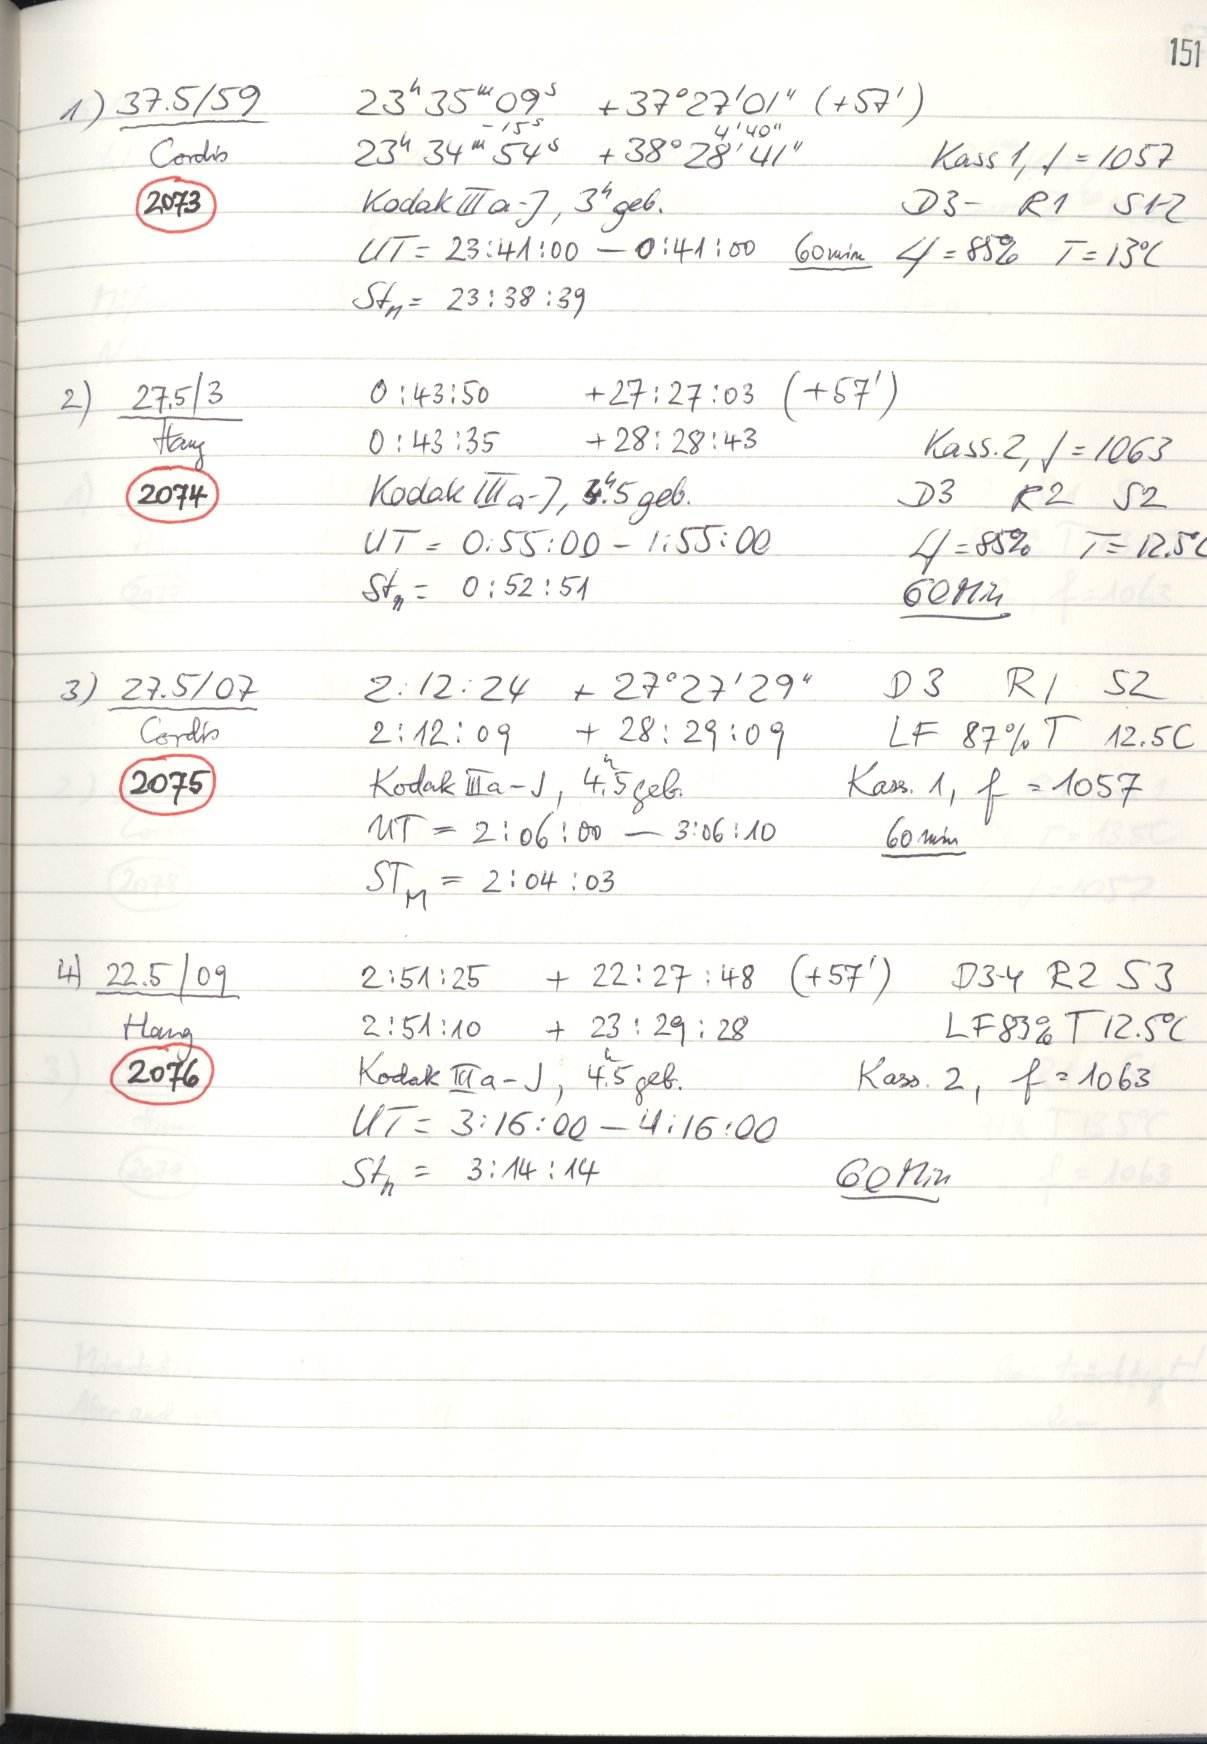 151
1) 37.5/59 23ʰ35ᵐ09ˢ +37°27'01" (+57')
-15ˢ 4'40"
Cordis 23ʰ34ᵐ54ˢ +38°28'41" Kass 1, f = 1057
2073 Kodak IIIa-J, 3ʰ geb. D3- R1 S1-2
UT = 23:41:00 – 0:41:00 60min LF = 85% T = 13°C
Stₘ = 23:38:39
2) 27.5/3 0:43:50 +27:27:03 (+57')
Hang 0:43:35 +28:28:43 Kass. 2, f = 1063
2074 Kodak IIIa-J, 4ʰ.5 geb. D3 R2 S2
UT = 0:55:00 – 1:55:00 LF = 85% T = 12.5°C
Stₘ = 0:52:51 60 Min
3) 27.5/07 2:12:24 + 27°27'29" D3 R1 S2
Cordis 2:12:09 + 28:29:09 LF 87% T 12.5C
2075 Kodak IIIa-J, 4ʰ.5 geb. Kass. 1, f = 1057
UT = 2:06:00 – 3:06:10 60 min
ST_M = 2:04:03
4) 22.5/09 2:51:25 + 22:27:48 (+57') D3-4 R2 S3
Hang 2:51:10 + 23:29:28 LF 83% T 12.5°C
2076 Kodak IIIa-J, 4ʰ.5 geb. Kass. 2, f = 1063
UT = 3:16:00 – 4:16:00
Stₘ = 3:14:14 60 Min